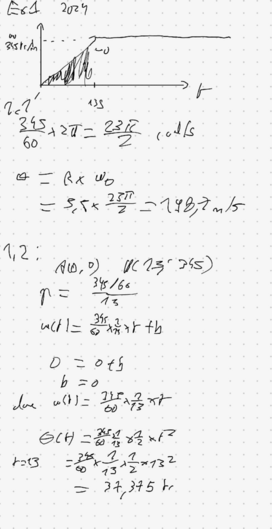 Ex1 2024
ω
345tr/mn
13s
t
1.1
345/60 × 2π = 23π/2 rad/s
= R × ω0
= 5,5 × 23π/2 = 198,7 m/s
1,2 :
A(0,0) (13; 345)
= 345/60/13
ω(t) = 345/60 × 1/13 × t + b
0 = 0 + b
b = 0
donc ω(t) = 345/60 × 1/13 × t
Θ(t) = 345/60 × 1/13 × 1/2 × t²
t=13 = 345/60 × 1/13 × 1/2 × 13²
= 37,375 tr